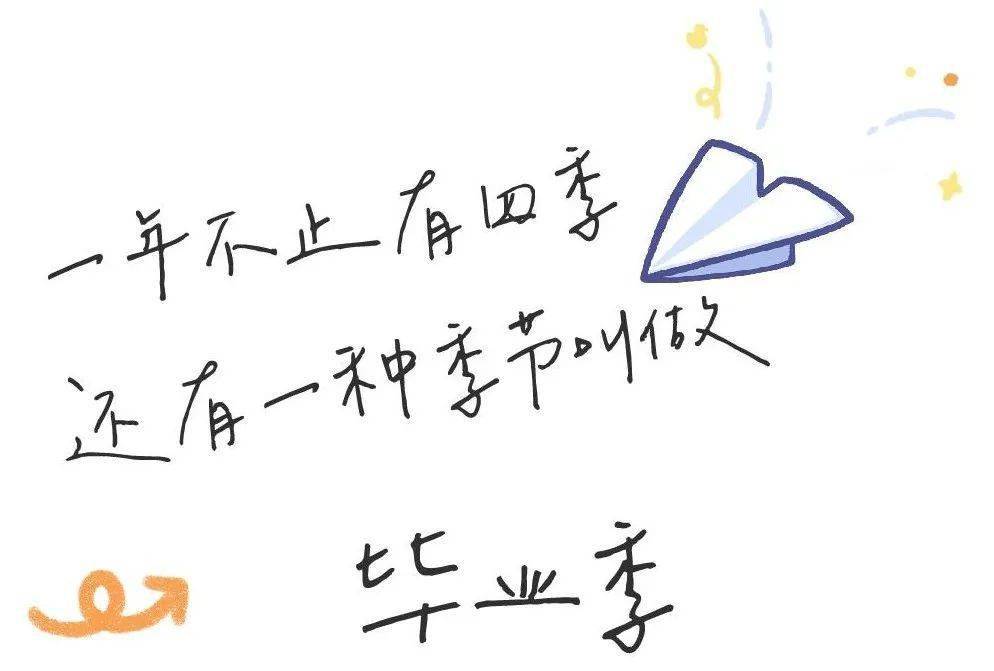 一年不止有四季
还有一种季节叫做
毕业季